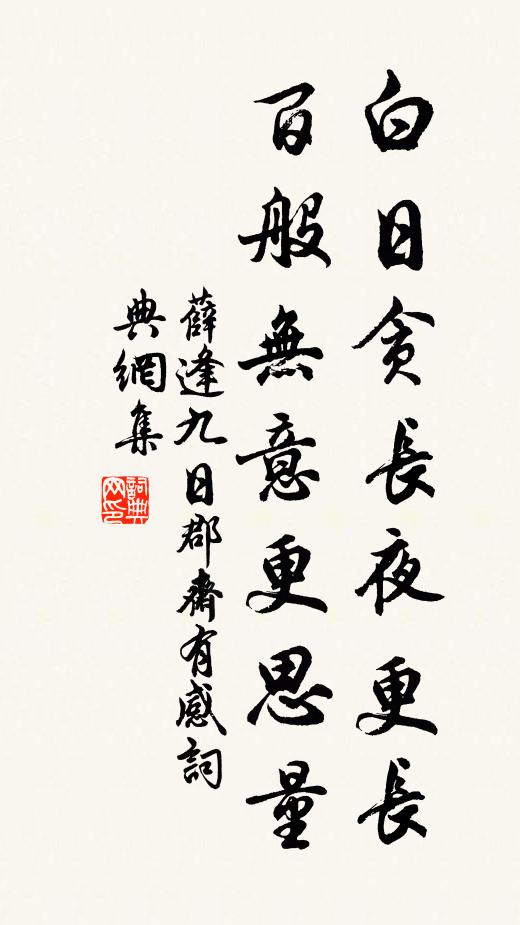 白日貪長夜更長
百般無意更思量
薛逢九日郡齋有感詞
典網集
詞典
网印